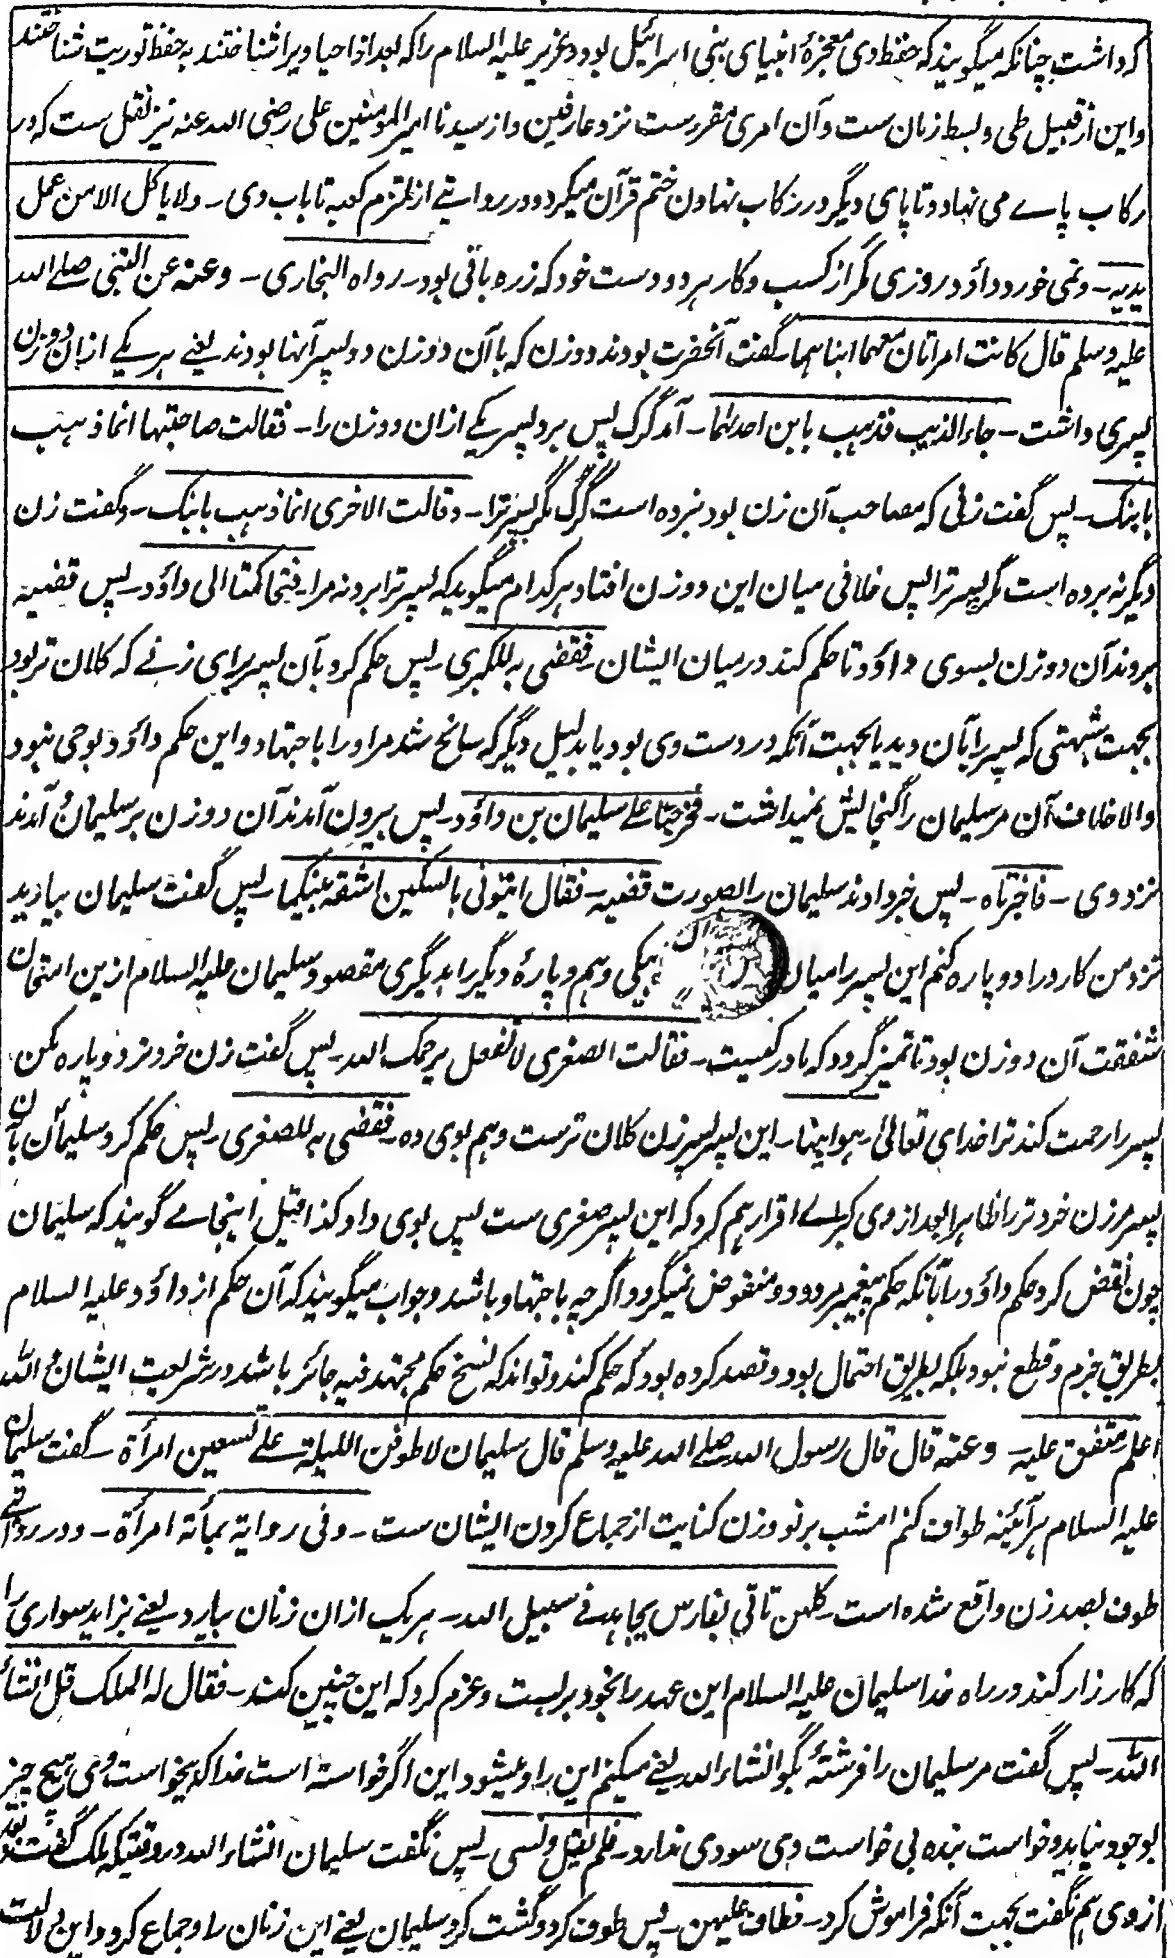 که داشت چنانکه میگویند که حفظ وی معجزهٔ انبیای بنی اسرائیل بود و عزیر علیه السلام را که بعد از احیا ویرا شناختند به حفظ توریت شناختند
و این از قبیل طی و بسط زمان ست و آن امری مقررست نزد عارفین و از سیدنا امیر المومنین علی رضی الله عنه نیز نقل ست که در
رکاب پاے می نهاد و تا پای دیگر در رکاب نهادن ختم قرآن میکرد و در روایتے از ملتزم کعبه تا باب وی ـ ولا یاکل الا من عمل
یدیه ـ و نمی خورد داؤد روزی مگر از کسب و کار هر دو دست خود که زره بافی بود ـ رواه البخاری ـ و عنه عن النبی صلے الله
علیه وسلم قال کانت امراتان معهما ابناهما ـ گفت آنحضرت بودند دو زن که با آن دو زن دو پسر آنها بودند یعنے هر یکے ازان دو زن
پسری داشت ـ جاء الذیب فذهب بابن احدٰهما ـ آمد گرگ پس برد پسر یکے ازان دو زن را ـ فقالت صاحبتها انما ذهب
بابنک ـ پس گفت زنی که مصاحب آن زن بود نبرده است گرگ مگر پسر ترا ـ و قالت الاخری انما ذهب بابنک ـ و گفت زن
دیگر نه برده است مگر پسر ترا پس خلافی میان این دو زن افتاد هر کدام میگوید که پسر ترا برد نه مرا ـ فتحاکمتا الی داؤد ـ پس قضیه
بردند آن دو زن بسوی داؤد تا حکم کند درمیان ایشان ـ فقضی به للکبری ـ پس حکم کرد بآن پسر برای زنے که کلان تر بود
بجهت شبهتی که پسر را بآن دید یا بجهت آنکه در دست وی بود یا بدلیل دیگر که سانح شد مر او را باجتهاد و این حکم داؤد بوحی نبود
والا خلاف آن مر سلیمان را گنجایش نمیداشت ـ فخرجتا علے سلیمان بن داؤد ـ پس بیرون آمدند آن دو زن بر سلیمان و آمدند
نزد وی ـ فاخبرتاه ـ پس خبر دادند سلیمان را بصورت قضیه ـ فقال ایتونی بالسکین اشقه بینکما ـ پس گفت سلیمان بیارید
نزد من کارد را دو پاره کنم این پسر را میان بیکی و هم و پارهٔ دیگر را بدیگری مقصود سلیمان علیه السلام ازین امتحان
شفقت آن دو زن بود تا تمیز گردد که مادر کیست ـ فقالت الصغری لا تفعل یرحمک الله ـ پس گفت زن خرد تر دو پاره مکن
پسر را رحمت کند ترا خدای تعالیٰ ـ هو ابنها ـ این پسر پسر زن کلان ترست و هم بوی ده ـ فقضی به للصغری ـ پس حکم کرد سلیمان بآن
پسر مر زن خرد تر را ظاهرا بعد از وی کبرے اقرار هم کرد که این پسر صغری ست پس بوی داد کذا قیل اینجا مے گویند که سلیمان
چون نقض کرد حکم داؤد را بآنکه حکم پیغمبر مردود و منقوض نمیگردد اگر چه باجتهاد باشد و جواب میگویند که آن حکم از داؤد علیه السلام
بطریق جزم و قطع نبود بلکه بطریق احتمال بود و قصد کرده بود که حکم کند و تواند که نسخ حکم مجتهد فیه جائز باشد در شریعت ایشان والله
اعلم متفق علیه ـ و عنه قال قال رسول الله صلے الله علیه وسلم قال سلیمان لاطوفن اللیلة علے تسعین امرأة ـ گفت سلیمان
علیه السلام هر آئینه طواف کنم امشب بر نود زن کنایت از جماع کردن ایشان ست ـ و فی روایة بمأئة امرأة ـ و در روایتے
طوف بصد زن واقع شده است ـ کلهن تاتی بفارس یجاهد فے سبیل الله ـ هر یک ازان زنان بیارد یعنے بزاید سواری را
که کارزار کند در راه خدا سلیمان علیه السلام این عهد را بخود بر بست و عزم کرد که این چنین کند ـ فقال له الملک قل انشاء
الله ـ پس گفت مر سلیمان را فرشتهٔ بگو انشاء الله یعنے میکنم این را و میشود این اگر خواسته است خدا که بیخواست وی هیچ چیز
بوجود نیاید و خواست بنده بی خواست وی سودی ندارد ـ فلم یقل و نسی ـ پس نگفت سلیمان انشاء الله در وقتیکه ملک گفت
از وی هم نگفت بجهت آنکه فراموش کرد ـ فطاف علیهن ـ پس طوف کرد و گشت کرد سلیمان یعنے این زنان را و جماع کرد و این